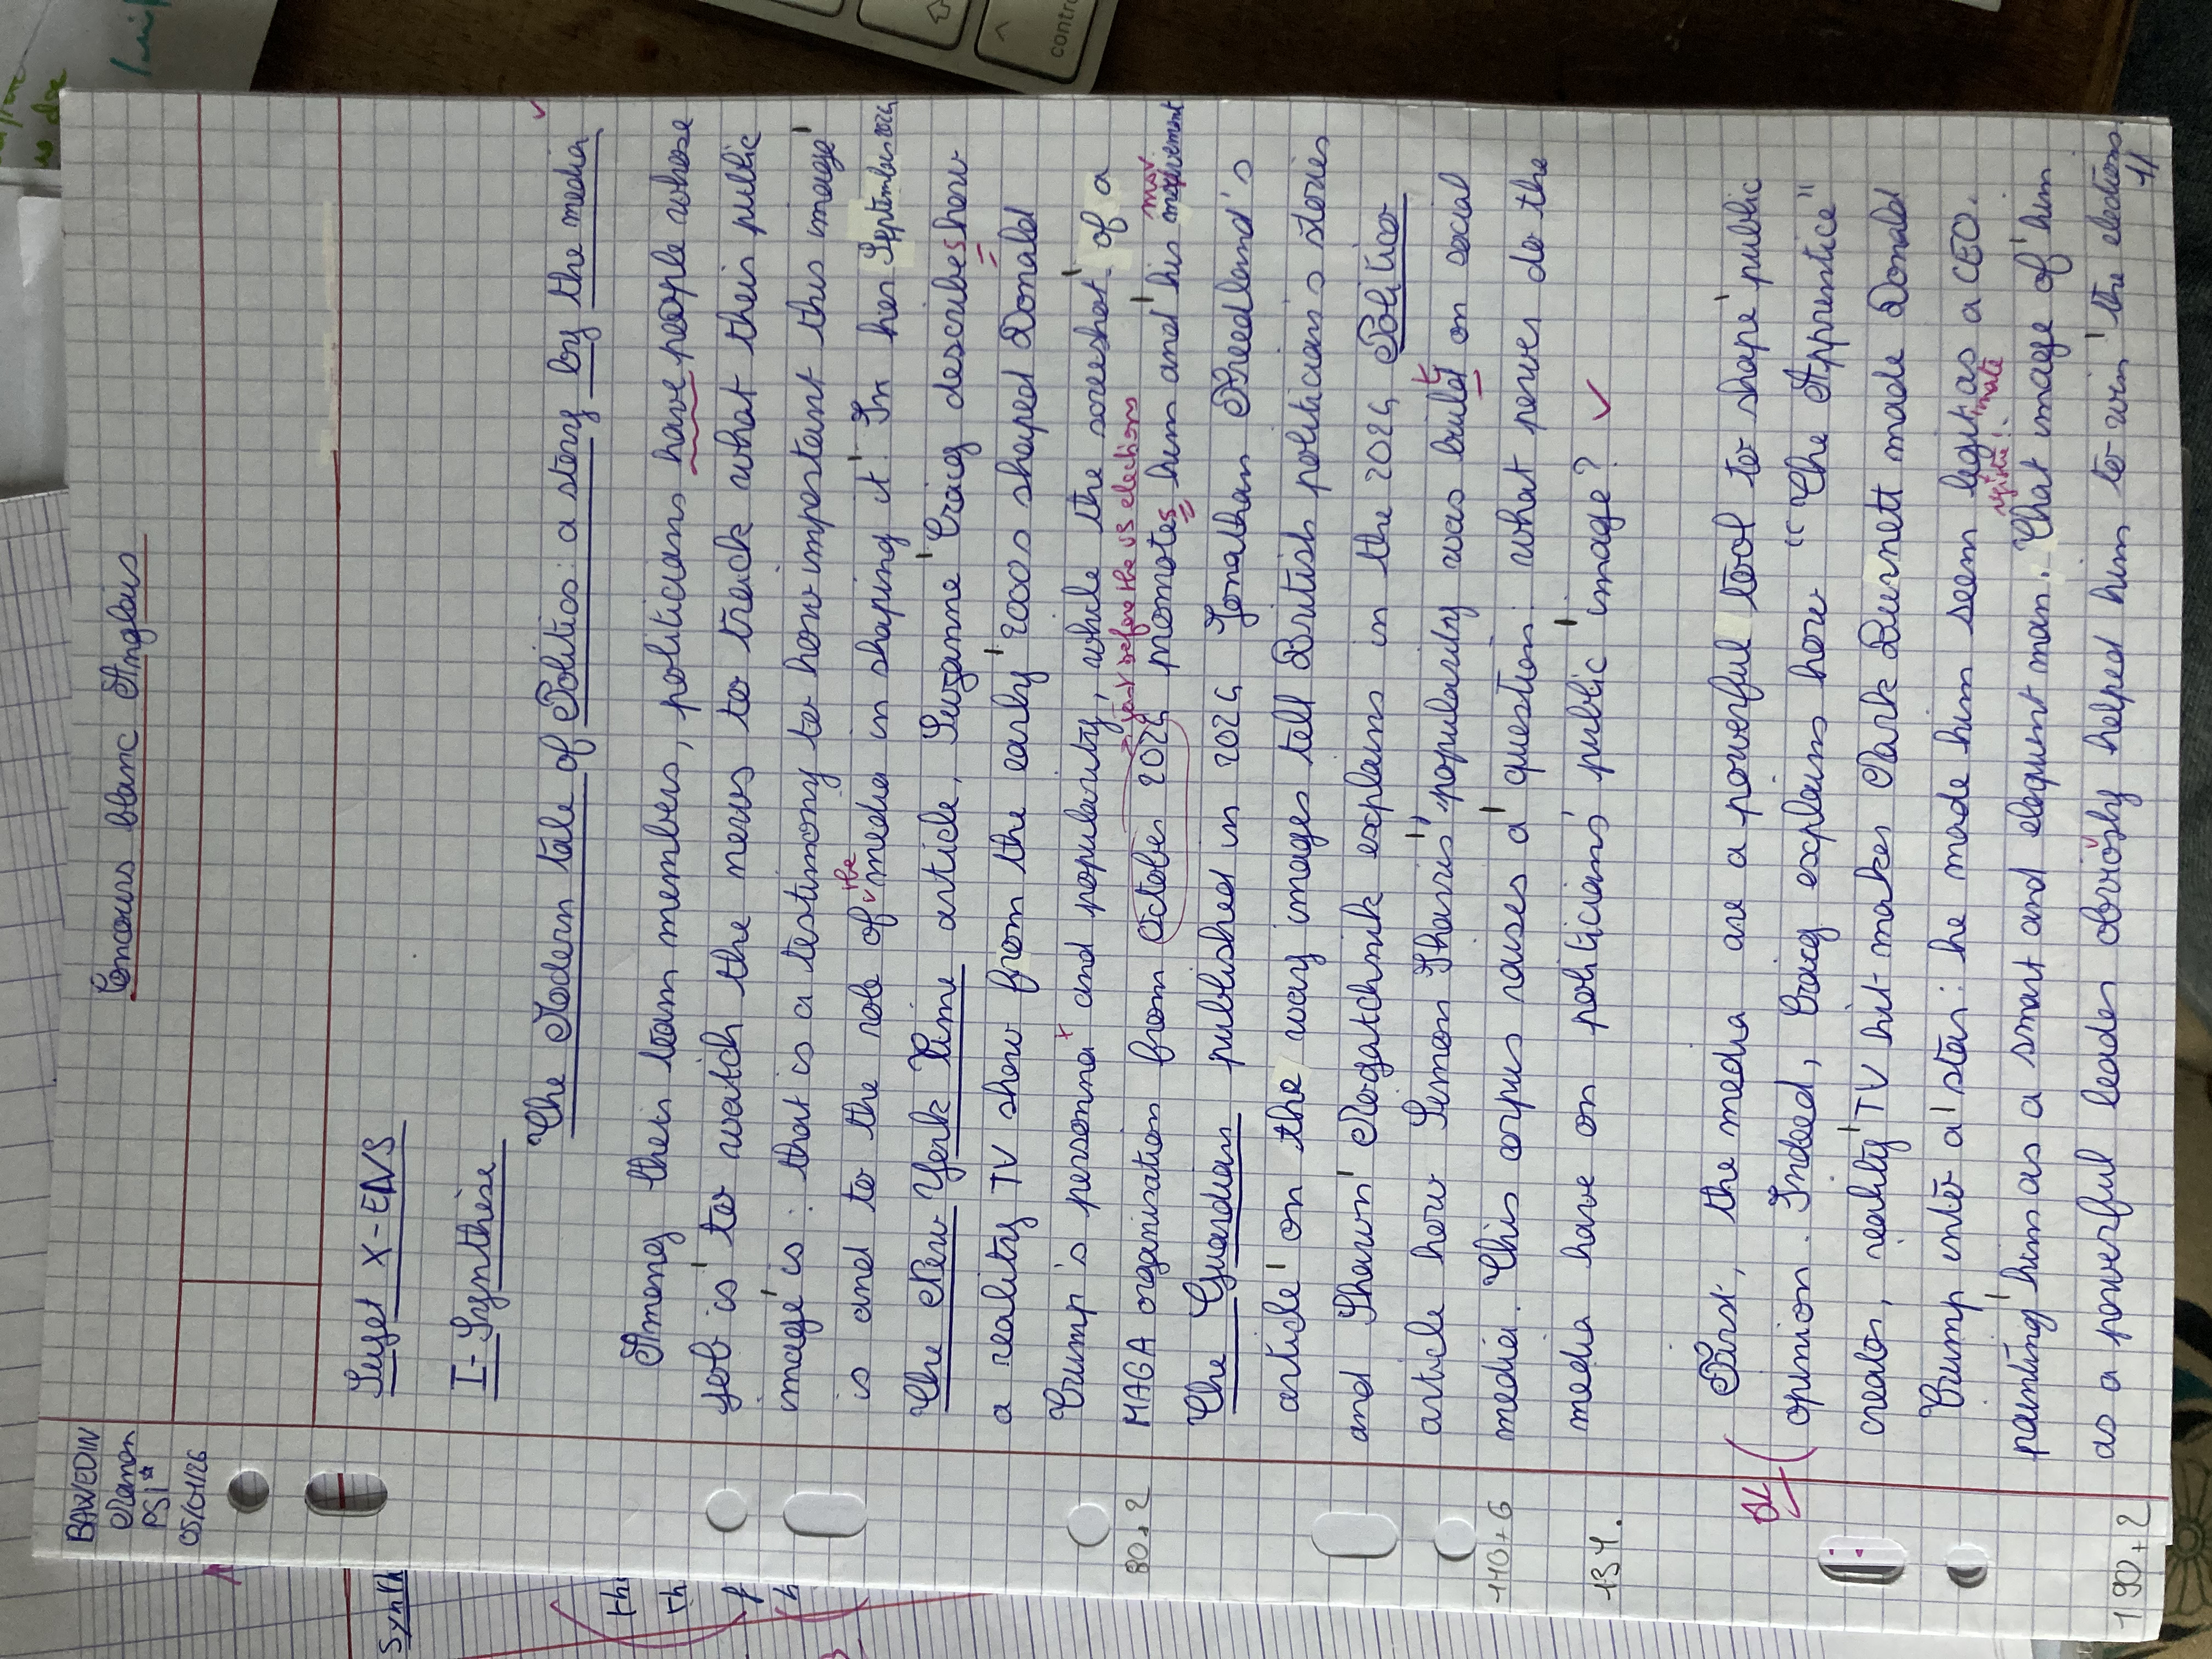 Concours blanc Anglais
BAWEDIN
Manon
PSI*
05/01/26
Sujet X-ENS
I- Synthèse
The Modern tale of Politics: a story by the media
Among their team members, politicians have people whose
job is to watch the news to track what their public
image is: that is a testimony to how important this image
is and to the role of the media in shaping it. In her September 2024
The New York Time article, Suzanne Craig describes how
a reality TV show from the early 2000s shaped Donald
Trump's personna and popularity, while the screeshot of a
just before the US elections
MAGA organisation from October 2024 promotes him and his mouvement
mov
80+2
The Guardian published in 2024 Jonathan Freedland's
article on the way images tell British politicians's stories
and Shawn Mogatchnik explains in the 2024 Politico
article how Simon Harris' popularity was build on social
t
media. This corpus raises a question: what power do the
110+6
media have on politicians' public image?
134.
First, the media are a powerful tool to shape public
opinion. Indeed, Craig explains how "The Apprentice"
creator, reality TV hit-maker Mark Burnett made Donald
Trump into a star: he made him seem legit as a CEO.
imate
painting him as a smart and eloquent man. That image of him
as a powerful leader obviosly helped him to win the elections
190+2
1/
control
Synth